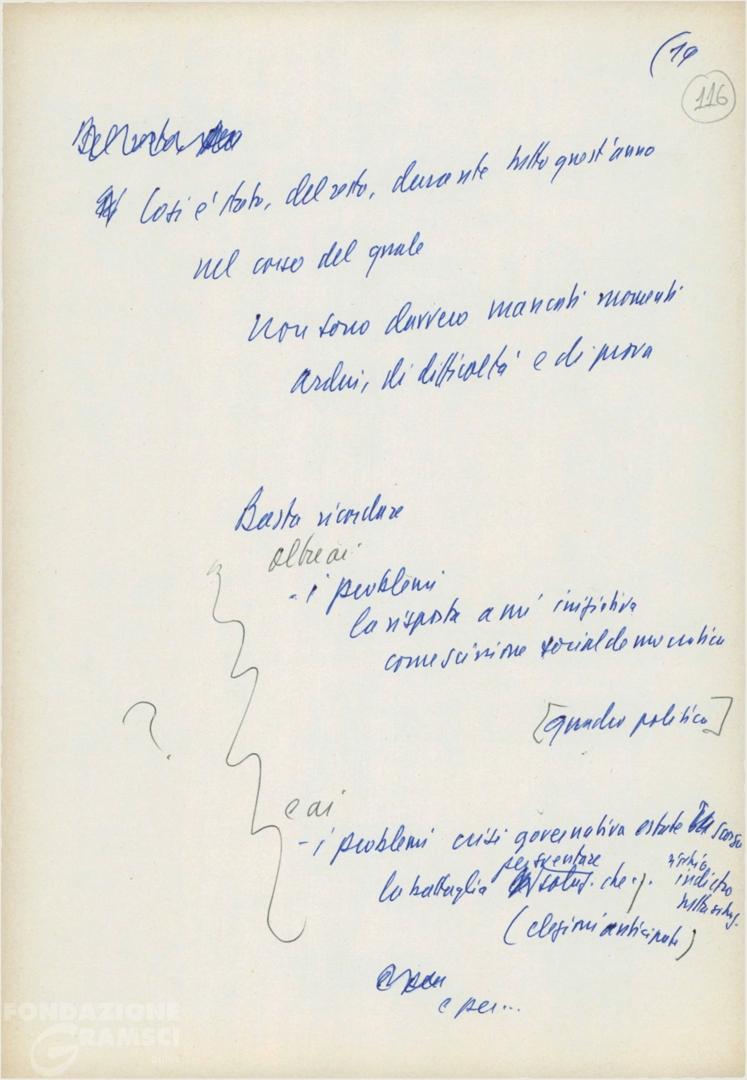 (19
116
Del resto
Così è stato, del resto, durante tutto quest'anno
nel corso del quale
Non sono davvero mancati momenti
ardui, di difficoltà e di prova
Basta ricordare
oltre ai
- i problemi
la risposta a un'iniziativa
come scissione socialdemocratica
[quadro politico]
?
e ai
- i problemi crisi governativa estate scorsa
per sventare
la battaglia soluz. che
indietro
(elezioni anticipate)
e per...
FONDAZIONE
GRAMSCI